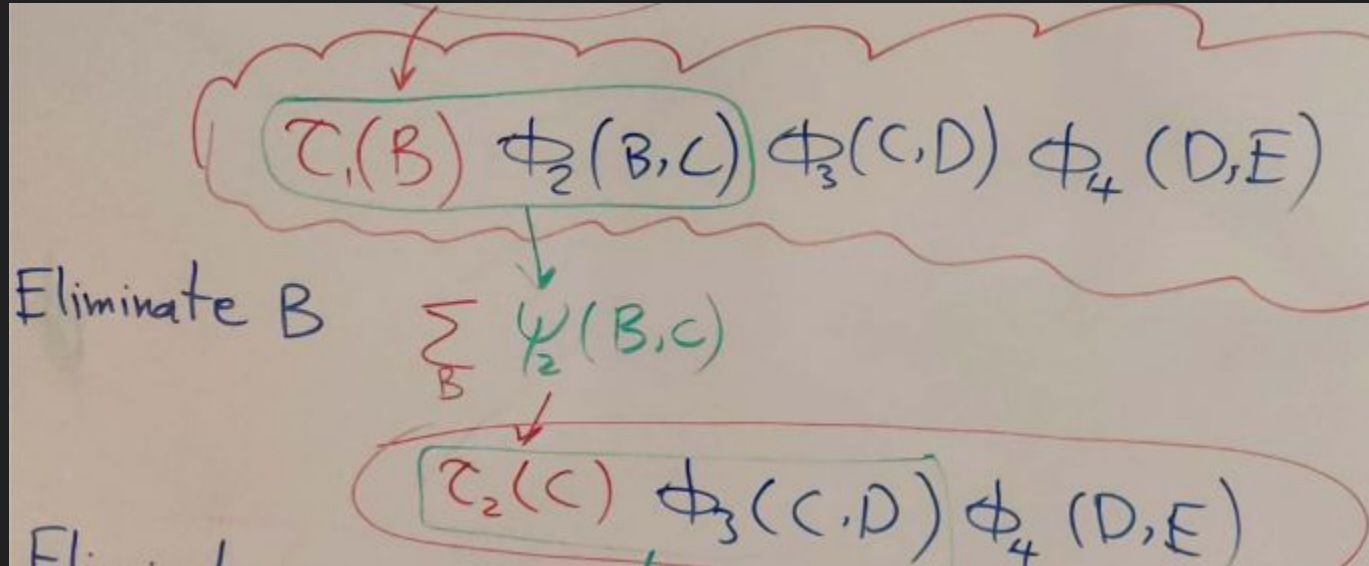 τ₁(B) ϕ₂(B,C) ϕ₃(C,D) ϕ₄(D,E)
Eliminate B ∑_B ψ₂(B,C)
τ₂(C) ϕ₃(C,D) ϕ₄(D,E)